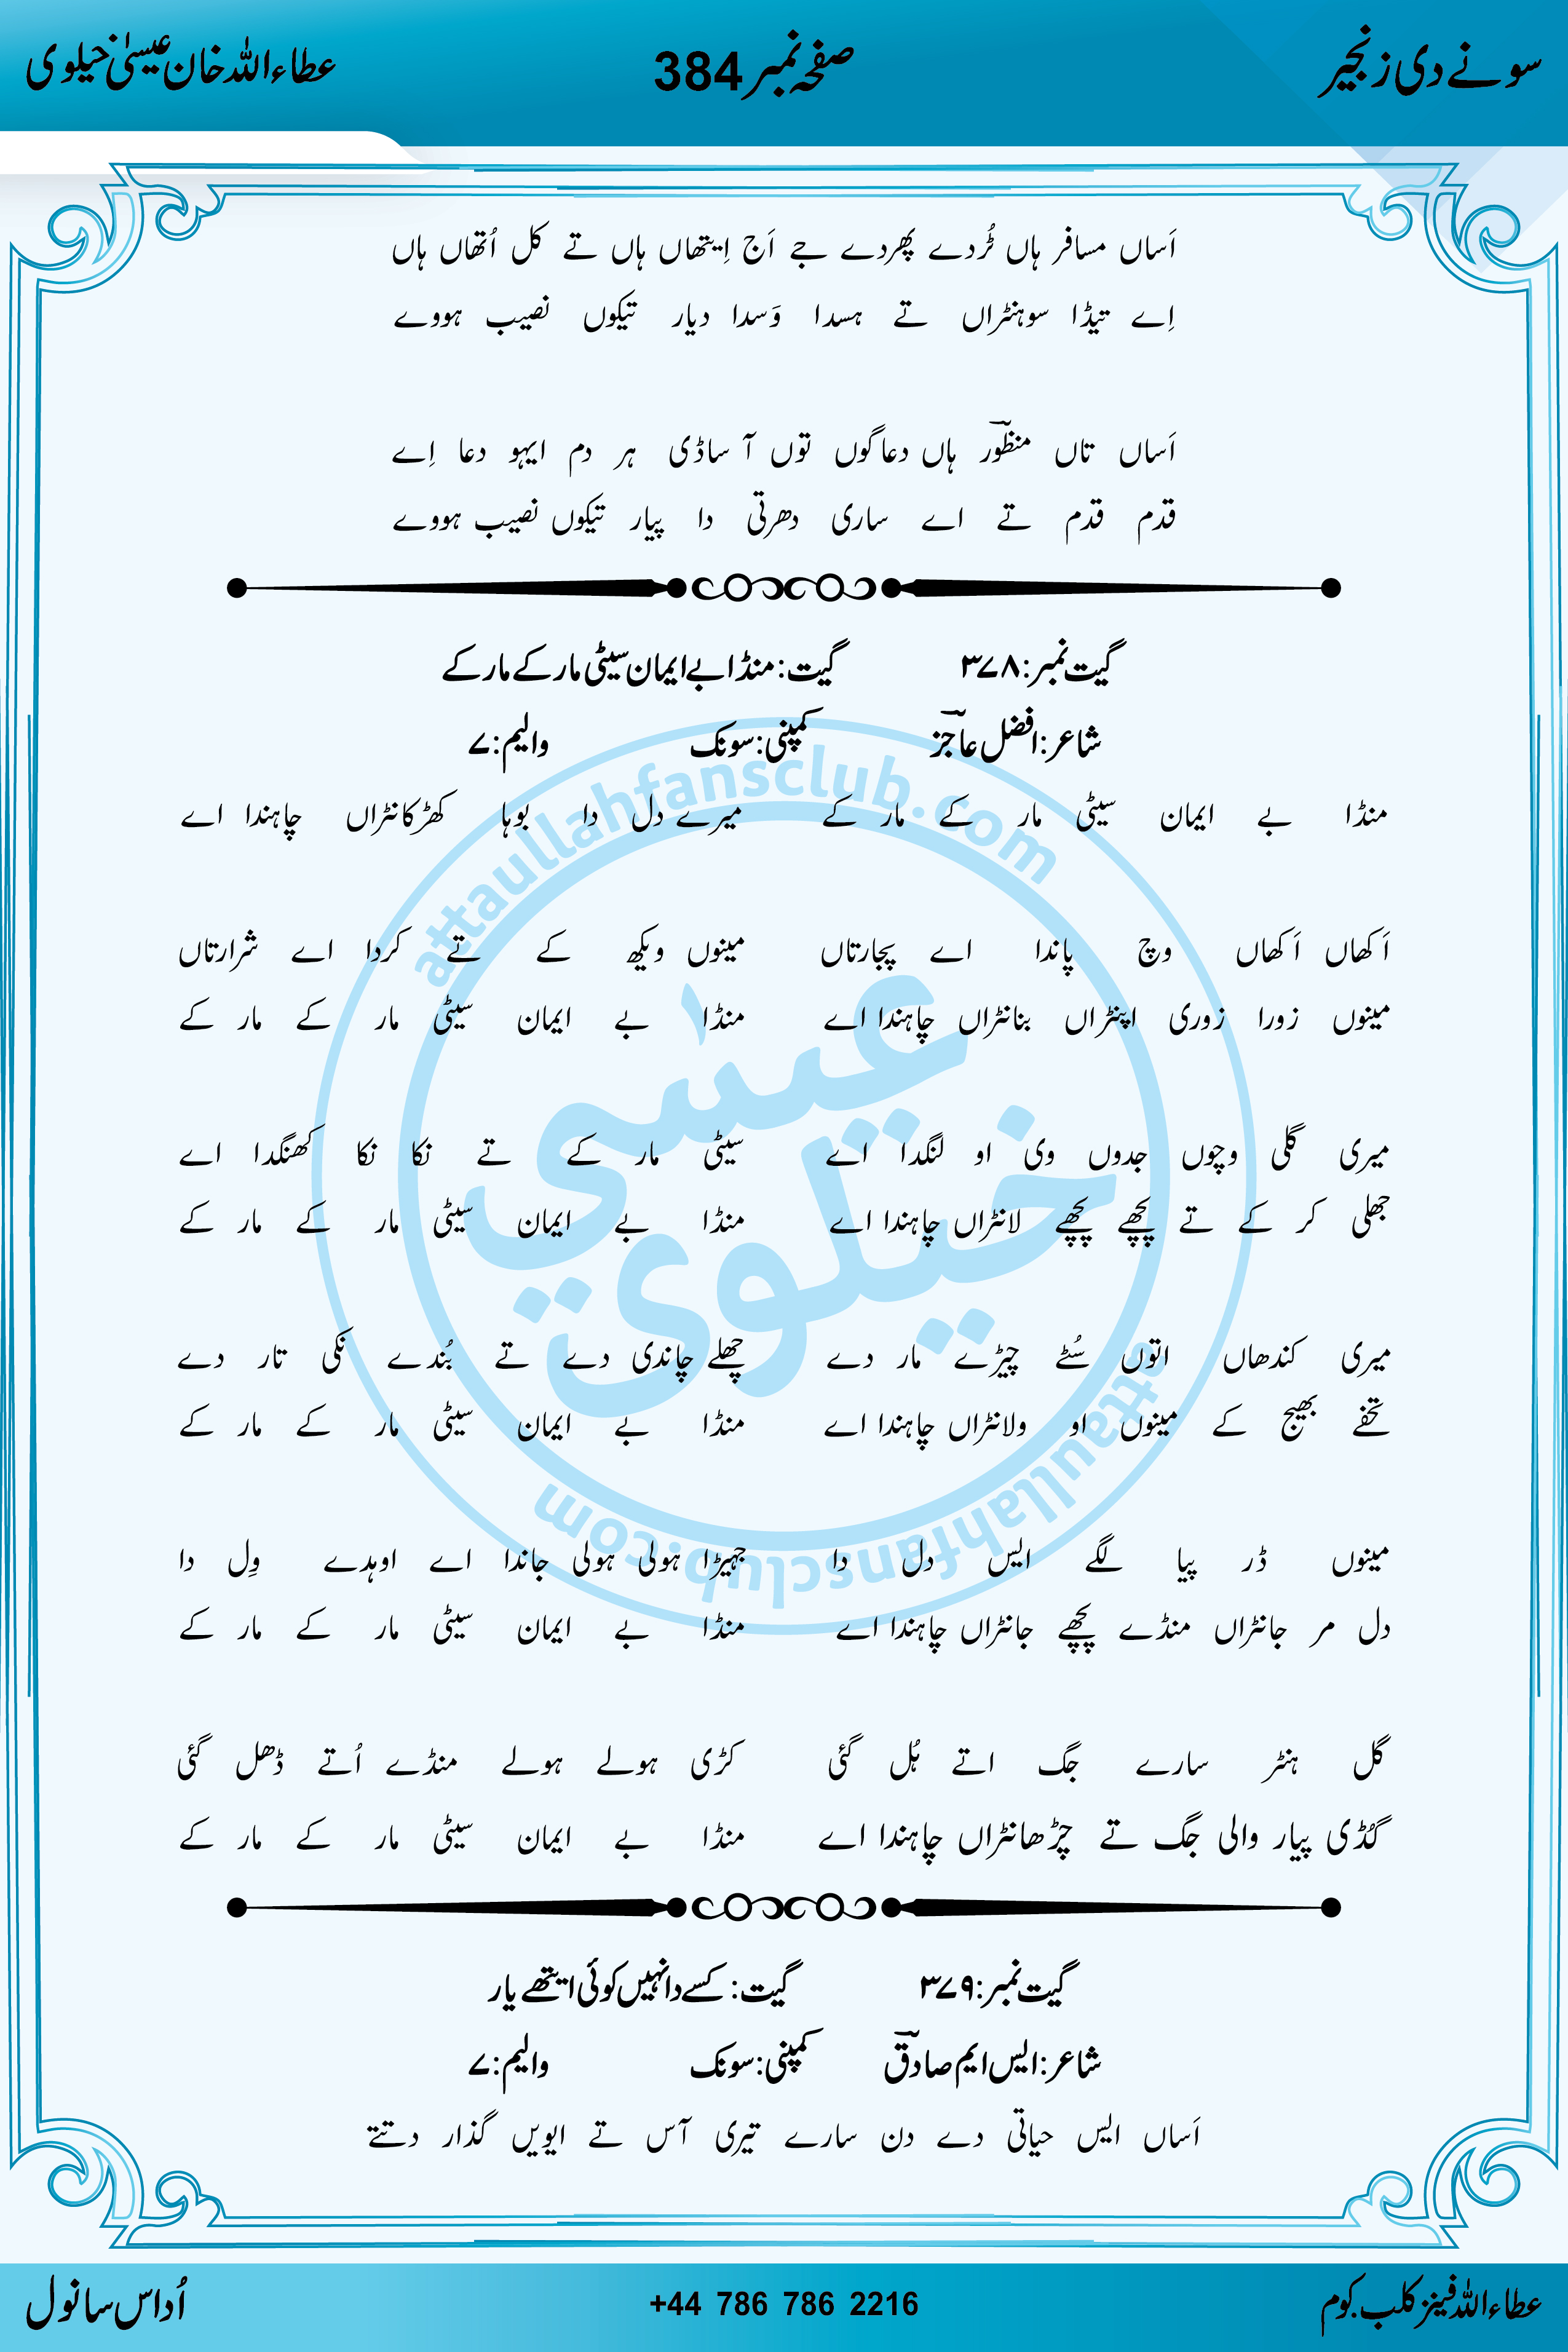 سونے دی زنجیر صفحہ نمبر 384 عطاءاللہ خان عیسیٰ خیلوی
اَساں مسافر ہاں ٹُردے پھردے جے اَج اِیتھاں ہاں تے کل اُتھاں ہاں
اِے تیڈا سوہنٹراں تے ہسدا وَسدا دیار تیکوں نصیب ہووے
اَساں تاں منظورؔ ہاں دعاگوں توں آ ساڈی ہر دم ایہو دعا اِے
قدم قدم تے اے ساری دھرتی دا پیار تیکوں نصیب ہووے
گیت نمبر: ۳۷۸ گیت: منڈا بے ایمان سیٹی مار کے مار کے
شاعر: افضل عاجزؔ کمپنی: سونک والیم: ۷
منڈا بے ایمان سیٹی مار کے مار کے میرے دل دا بوہا کھڑکانٹراں چاہندا اے
اَکھاں اَکھاں وچ پاندا اے پجارتاں مینوں ویکھ کے تے کردا اے شرارتاں
مینوں زورا زوری اپنٹراں بنانٹراں چاہندا اے منڈا بے ایمان سیٹی مار کے مار کے
میری گلی وچوں جدوں وی او لنگدا اے سیٹی مار کے تے نکا نکا کھنگدا اے
جھلی کر کے تے پچھے پچھے لانٹراں چاہندا اے منڈا بے ایمان سیٹی مار کے مار کے
میری کندھاں اتوں سُٹے چیڑے مار دے چھلے چاندی دے تے بُندے نکی تار دے
تحفے بھیج کے مینوں او ولانٹراں چاہندا اے منڈا بے ایمان سیٹی مار کے مار کے
مینوں ڈر پیا لگے ایس دل دا جہیڑا ہولی ہولی جاندا اے اوہدے وِل دا
دل مر جانٹراں منڈے پچھے جانٹراں چاہندا اے منڈا بے ایمان سیٹی مار کے مار کے
گل ہنٹر سارے جگ اتے ہُل گئی کڑی ہولے ہولے منڈے اُتے ڈھل گئی
گڈی پیار والی جگ تے چڑھانٹراں چاہندا اے منڈا بے ایمان سیٹی مار کے مار کے
گیت نمبر: ۳۷۹ گیت: کسے دا نہیں کوئی ایتھے یار
شاعر: ایس ایم صادقؔ کمپنی: سونک والیم: ۷
اَساں ایس حیاتی دے دن سارے تیری آس تے ایویں گذار دتتے
عطاءاللہ فینز کلب.کوم +44 786 786 2216 اُداس سانول
attaullahfansclub.com
عیسٰی
خیلوی
attaullahfansclub.com